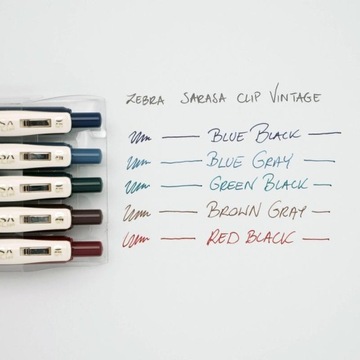 ZEBRA SARASA CLIP VINTAGE
BLUE BLACK
BLUE GRAY
GREEN BLACK
BROWN GRAY
RED BLACK